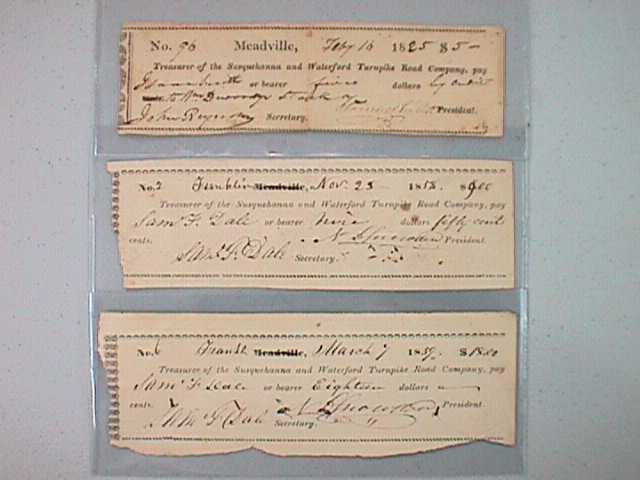 No. 96 Meadville, Feby 16 1825 $5—
Treasurer of the Susquehanna and Waterford Turnpike Road Company, pay
or bearer five dollars by order
President.
John Reynolds Secretary.
No. 2 Franklin Meadville, Nov. 25 1858. $9.00
Treasurer of the Susquehanna and Waterford Turnpike Road Company, pay
Saml F. Dale or bearer Nine dollars fifty cent
cents. President.
Saml F. Dale Secretary.
No. Frankl Meadville, March 7 1859. $18.00
Treasurer of the Susquehanna and Waterford Turnpike Road Company, pay
Saml F. Dale or bearer Eighteen dollars
cents. President.
Saml F. Dale Secretary.